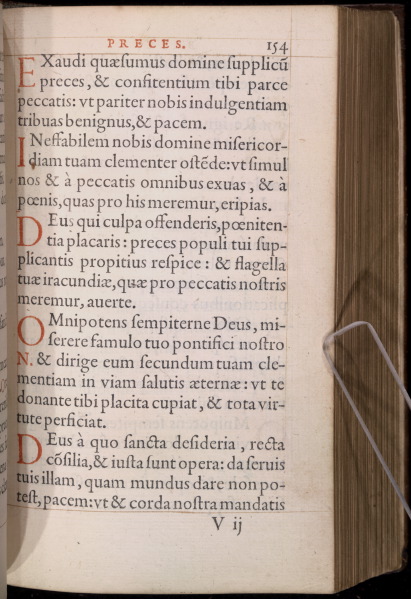 PRECES. 154
EXaudi quæsumus domine supplicũ
preces, & confitentium tibi parce
peccatis: vt pariter nobis indulgentiam
tribuas benignus, & pacem.
INeffabilem nobis domine misericor-
diam tuam clementer ostẽde: vt simul
nos & à peccatis omnibus exuas, & à
pœnis, quas pro his meremur, eripias.
DEus qui culpa offenderis, pœniten-
tia placaris: preces populi tui sup-
plicantis propitius respice: & flagella
tuæ iracundiæ, quæ pro peccatis nostris
meremur, auerte.
OMnipotens sempiterne Deus, mi-
serere famulo tuo pontifici nostro
N. & dirige eum secundum tuam cle-
mentiam in viam salutis æternæ: vt te
donante tibi placita cupiat, & tota vir-
tute perficiat.
DEus à quo sancta desideria, recta
cõsilia, & iusta sunt opera: da seruis
tuis illam, quam mundus dare non po-
test, pacem: vt & corda nostra mandatis
V ij